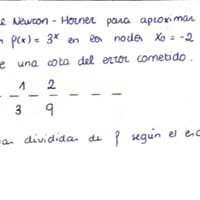 e Newton - Horner para aproximar
n p(x) = 3ˣ en los nodos x₀ = -2
e una cota del error cometido.
1 2
3 9
as dividida de f según el es